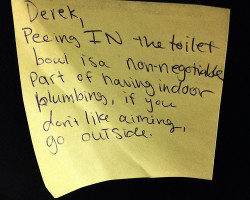 Derek,
Peeing IN the toilet
bowl is a non-negotiable
part of having indoor
plumbing, if you
don't like aiming,
go outside.